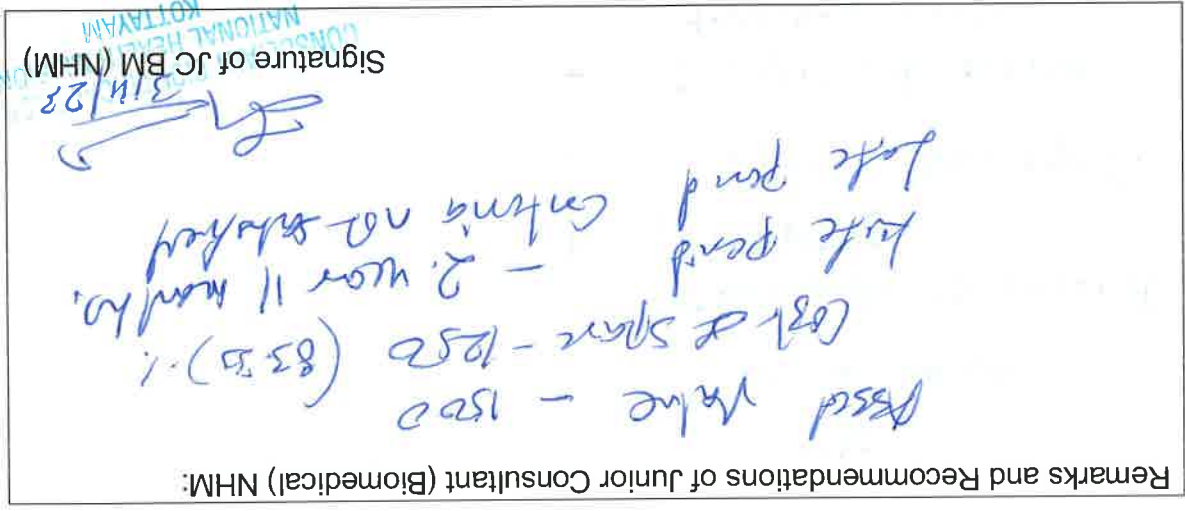 Remarks and Recommendations of Junior Consultant (Biomedical) NHM:
Asset Value - 1500
Cost of Spare - 1250 (83.33)%.
Life period - 2. year 11 months.
Life period Criteria not satisfied
3/4/23
Signature of JC BM (NHM)
NATIONAL HEALTH
KOTTAYAM